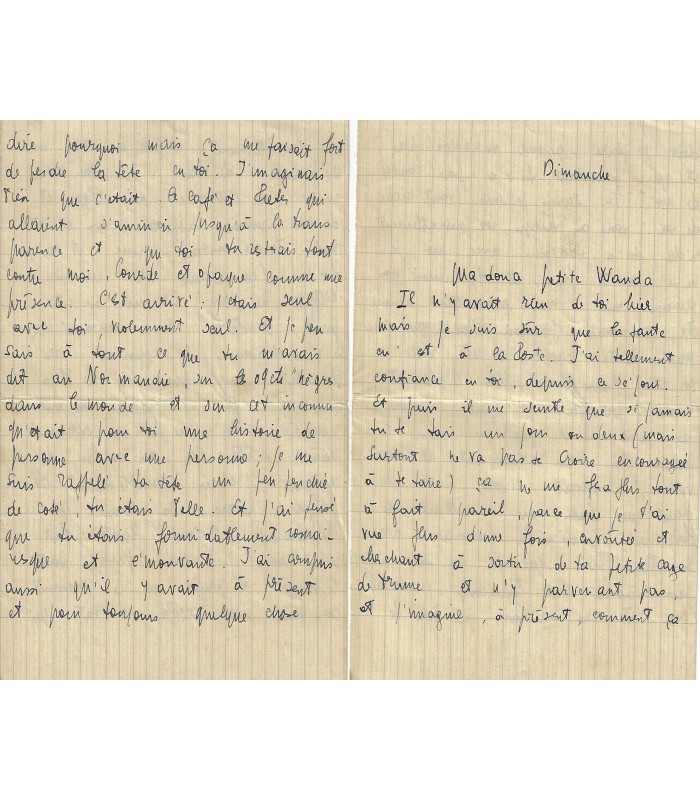 Dimanche
Ma dona petite Wanda
Il n'y avait rien de toi hier
mais je suis sûr que la faute
en est à la Poste. J'ai tellement
confiance en toi, depuis ce séjour.
Et puis il me semble que si jamais
tu te tais un jour ou deux (mais
surtout ne va pas te croire encouragée
à te taire) ça ne me fera plus tout
à fait pareil, parce que je t'ai
vue plus d'une fois, envoûtée et
cherchant à sortir de ta petite cage
de brume et n'y parvenant pas,
et j'imagine, à présent, comment ça
dire pourquoi mais ça me faisait fort
de perdre la tête en toi. J'imaginais
rien que c'était le café et qui
allaient s'amincir jusqu'à la trans
parence et que toi tu restrais tout
contre moi, lourde et opaque comme une
présence. C'est arrivé; j'étais seul
avec toi, violemment seul. Et je pen
sais à tout ce que tu m'avais
dit au Normandie, sur le "nègres
dans le monde et sur cet inconnu
qu'était pour toi une histoire de
personne avec une personne; je me
suis rappelé ta tête un peu penchée
de coté, tu étais belle. Et j'ai pensé
que tu étais formidablement roma-
nesque et émouvante. J'ai compris
aussi qu'il y avait à présent
et pour toujours quelque chose